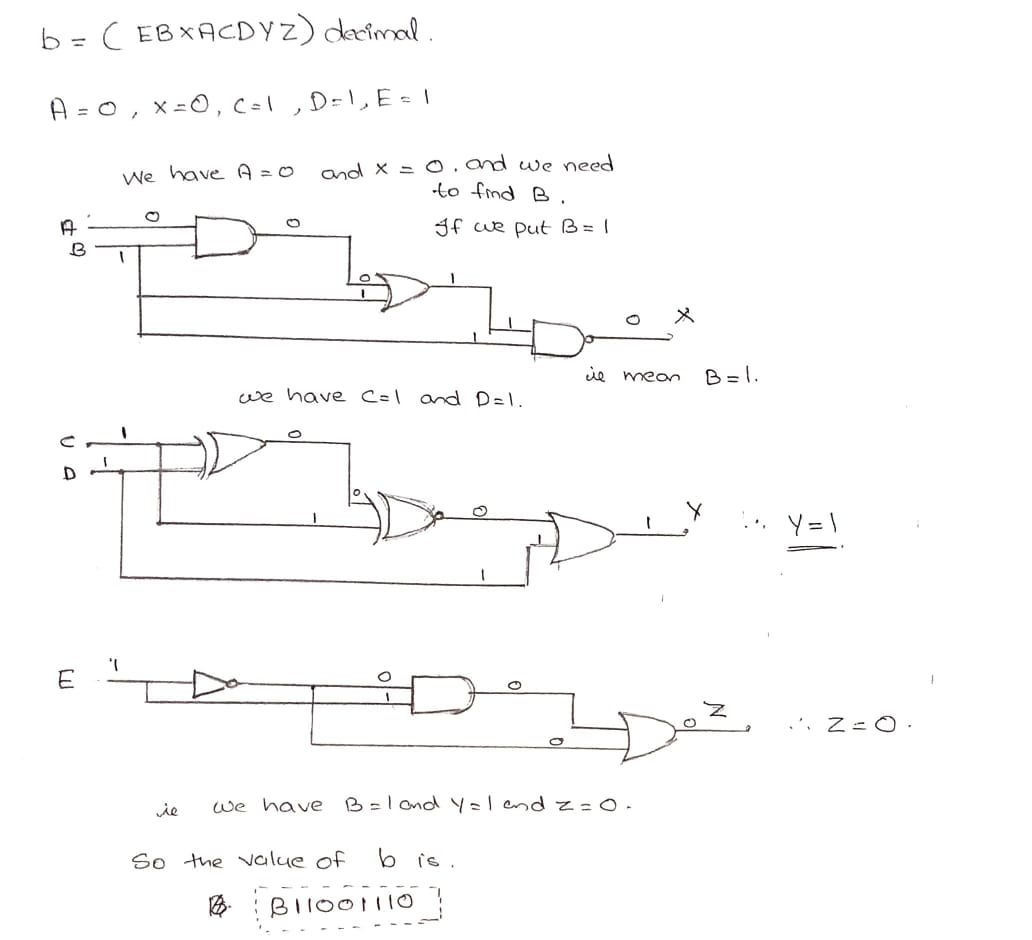 b = ( EBXACDYZ) decimal.
A = 0, X = 0, C = 1, D = 1, E = 1
We have A = 0 and X = 0. and we need
to find B.
If we put B = 1
A 0 0
B 1
0 1
1
1 0 X
1
ie mean B = 1.
we have C = 1 and D = 1.
C 1 0
D 1
0
1 0 1 Y ∴ Y = 1
1
1
E 1 0 0
1
0 Z ∴ Z = 0.
0
ie we have B = 1 and Y = 1 and Z = 0.
So the value of b is.
B11001110